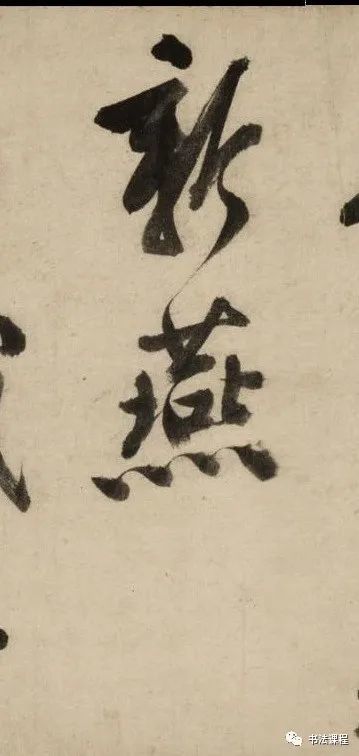 新燕
书法课程